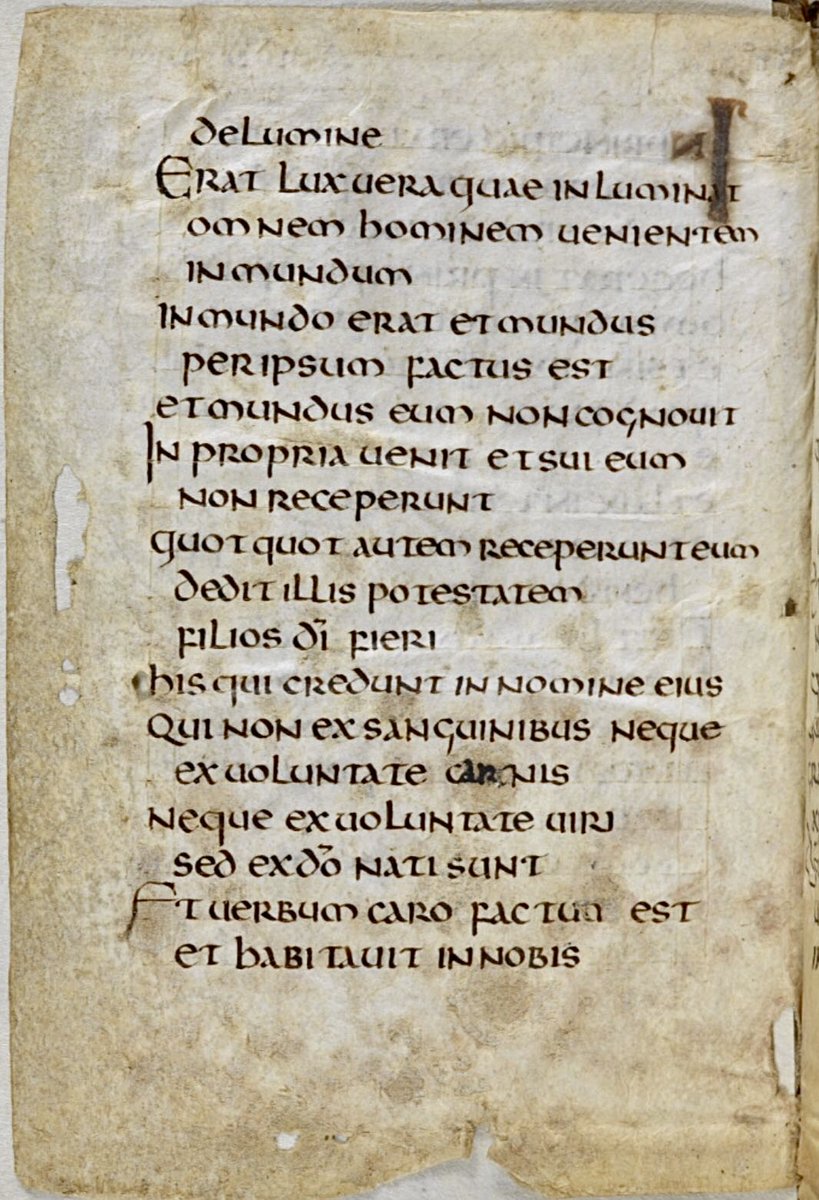 de lumine
Erat lux uera quae inluminat
omnem hominem uenientem
in mundum
in mundo erat et mundus
per ipsum factus est
et mundus eum non cognouit
In propria uenit et sui eum
non receperunt
quotquot autem receperunt eum
dedit illis potestatem
filios dī fieri
his qui credunt in nomine eius
Qui non ex sanguinibus neque
ex uoluntate carnis
neque ex uoluntate uiri
sed ex dō nati sunt
Et uerbum caro factum est
et habitauit in nobis